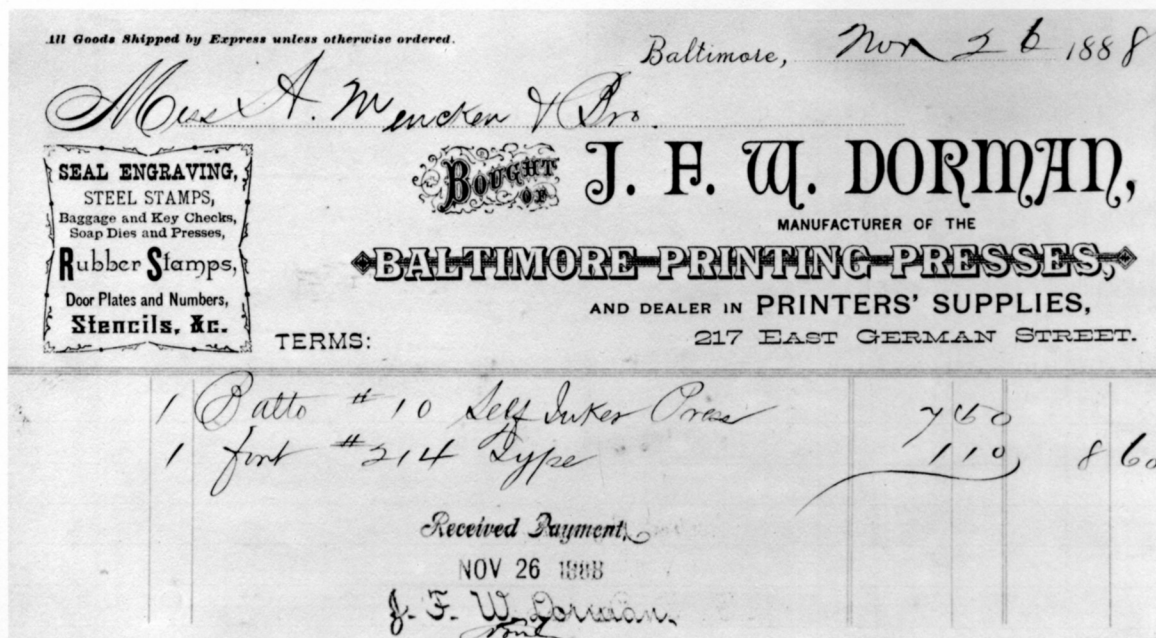 All Goods Shipped by Express unless otherwise ordered.
Baltimore, Nov 26 1888
Mess A. Mencken & Bro.
SEAL ENGRAVING,
STEEL STAMPS,
Baggage and Key Checks,
Soap Dies and Presses,
Rubber Stamps,
Door Plates and Numbers,
Stencils, &c.
BOUGHT OF J. F. W. DORMAN,
MANUFACTURER OF THE
BALTIMORE PRINTING PRESSES,
AND DEALER IN PRINTERS' SUPPLIES,
TERMS: 217 EAST GERMAN STREET.
1 Balto #10 Self Inker Press 7 50
1 font #214 Type 1 10 8 60
Received Payment,
NOV 26 1888
J. F. W. Dorman.